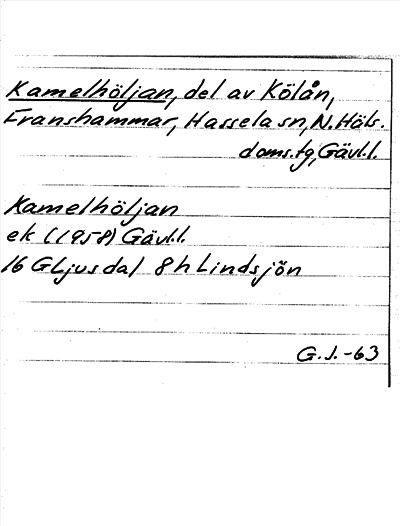 Kamelhöljan, del av Kölån,
Franshammar, Hassela sn, N. Häls.
doms.tg, Gävl.l.
Kamelhöljan
ek (1958) Gävl.l.
16 G Ljusdal 8 h Lindsjön
G. J. -63